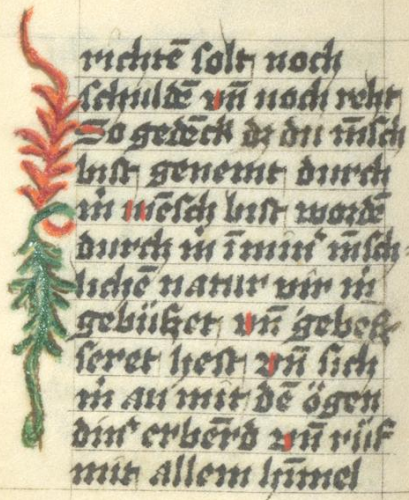 richtē solt noch
schuldē vn̄ noch reht
So gedēck dz du m̄sch
bist genemt durch
in mēsch bist wordē
durch in ī min͛ m̄sch-
lichē natur wir in
gebüßet vn̄ gebes-
seret hest vn̄ sich
in an mit dē ögen
din͛ erbērd vn̄ rüf
mit allem hīmel